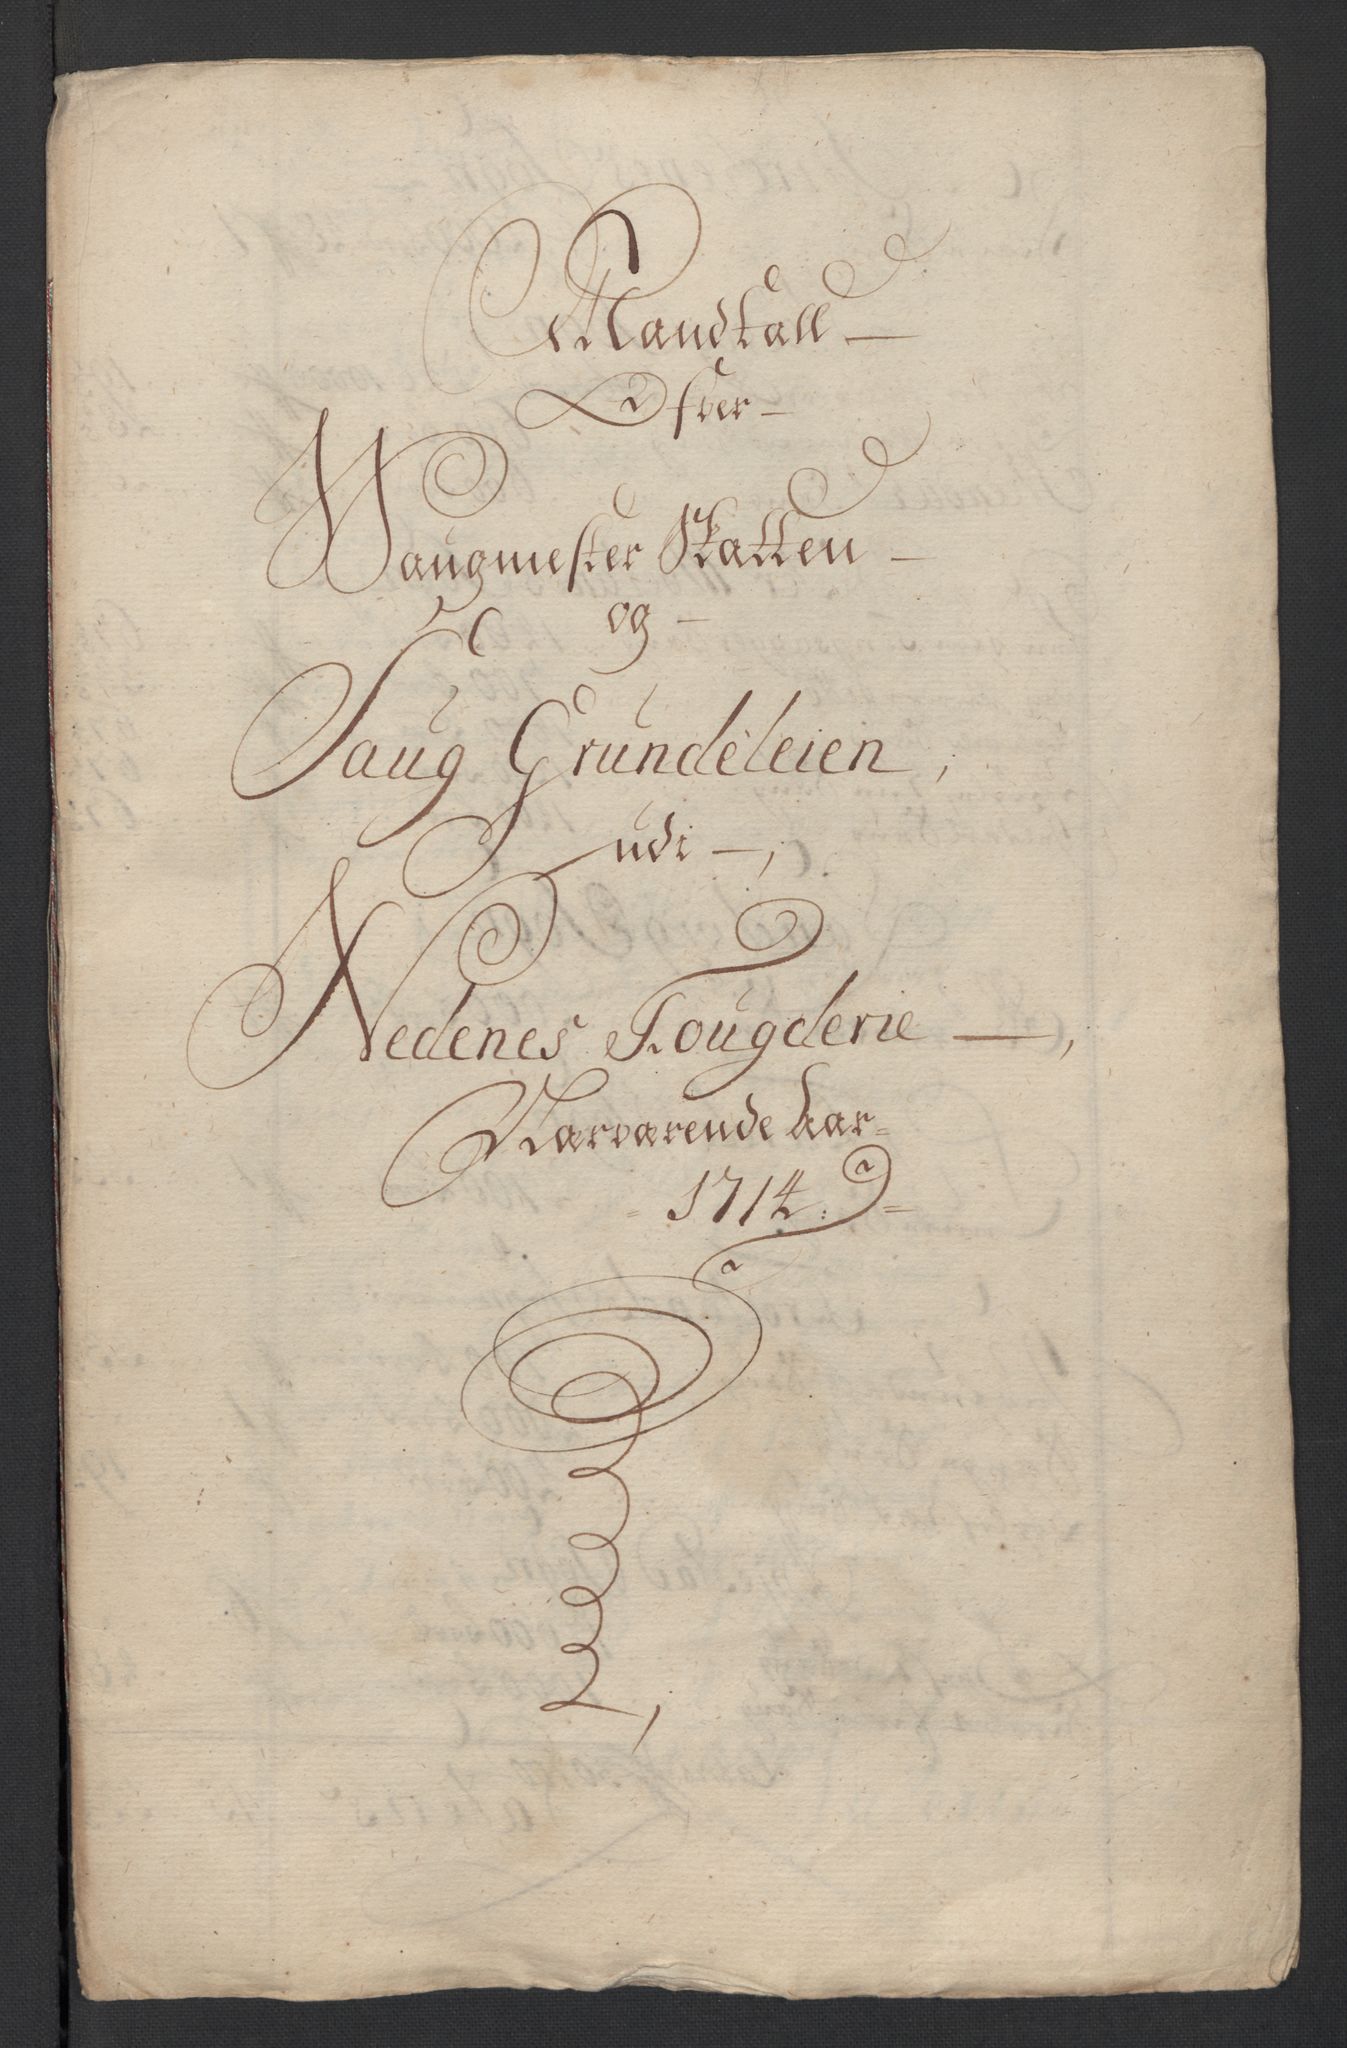 Mandtall
Ofver
Waugmester Skatten
og
Saug Grundeleien,
udi,
Nedenes Fougderie,
Nærværende Aar
1714.